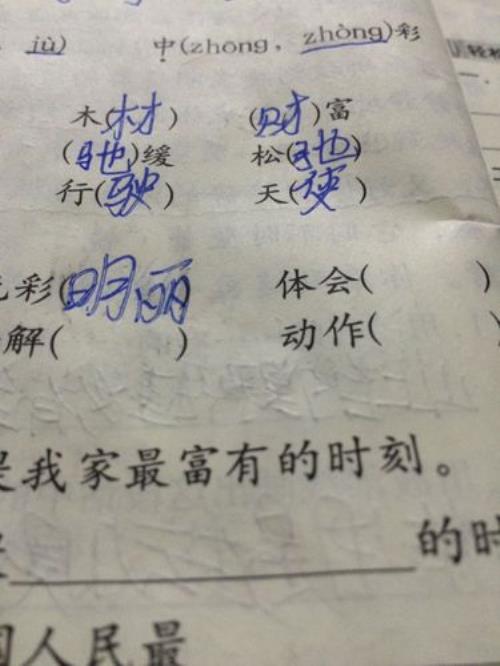 jù) 中(zhong, zhòng)彩
木(材) (财)富
(驰)缓 松(弛)
行(驶) 天(使)
彩(明丽 体会( )
解( ) 动作(
我家最富有的时刻。
的时
人民最